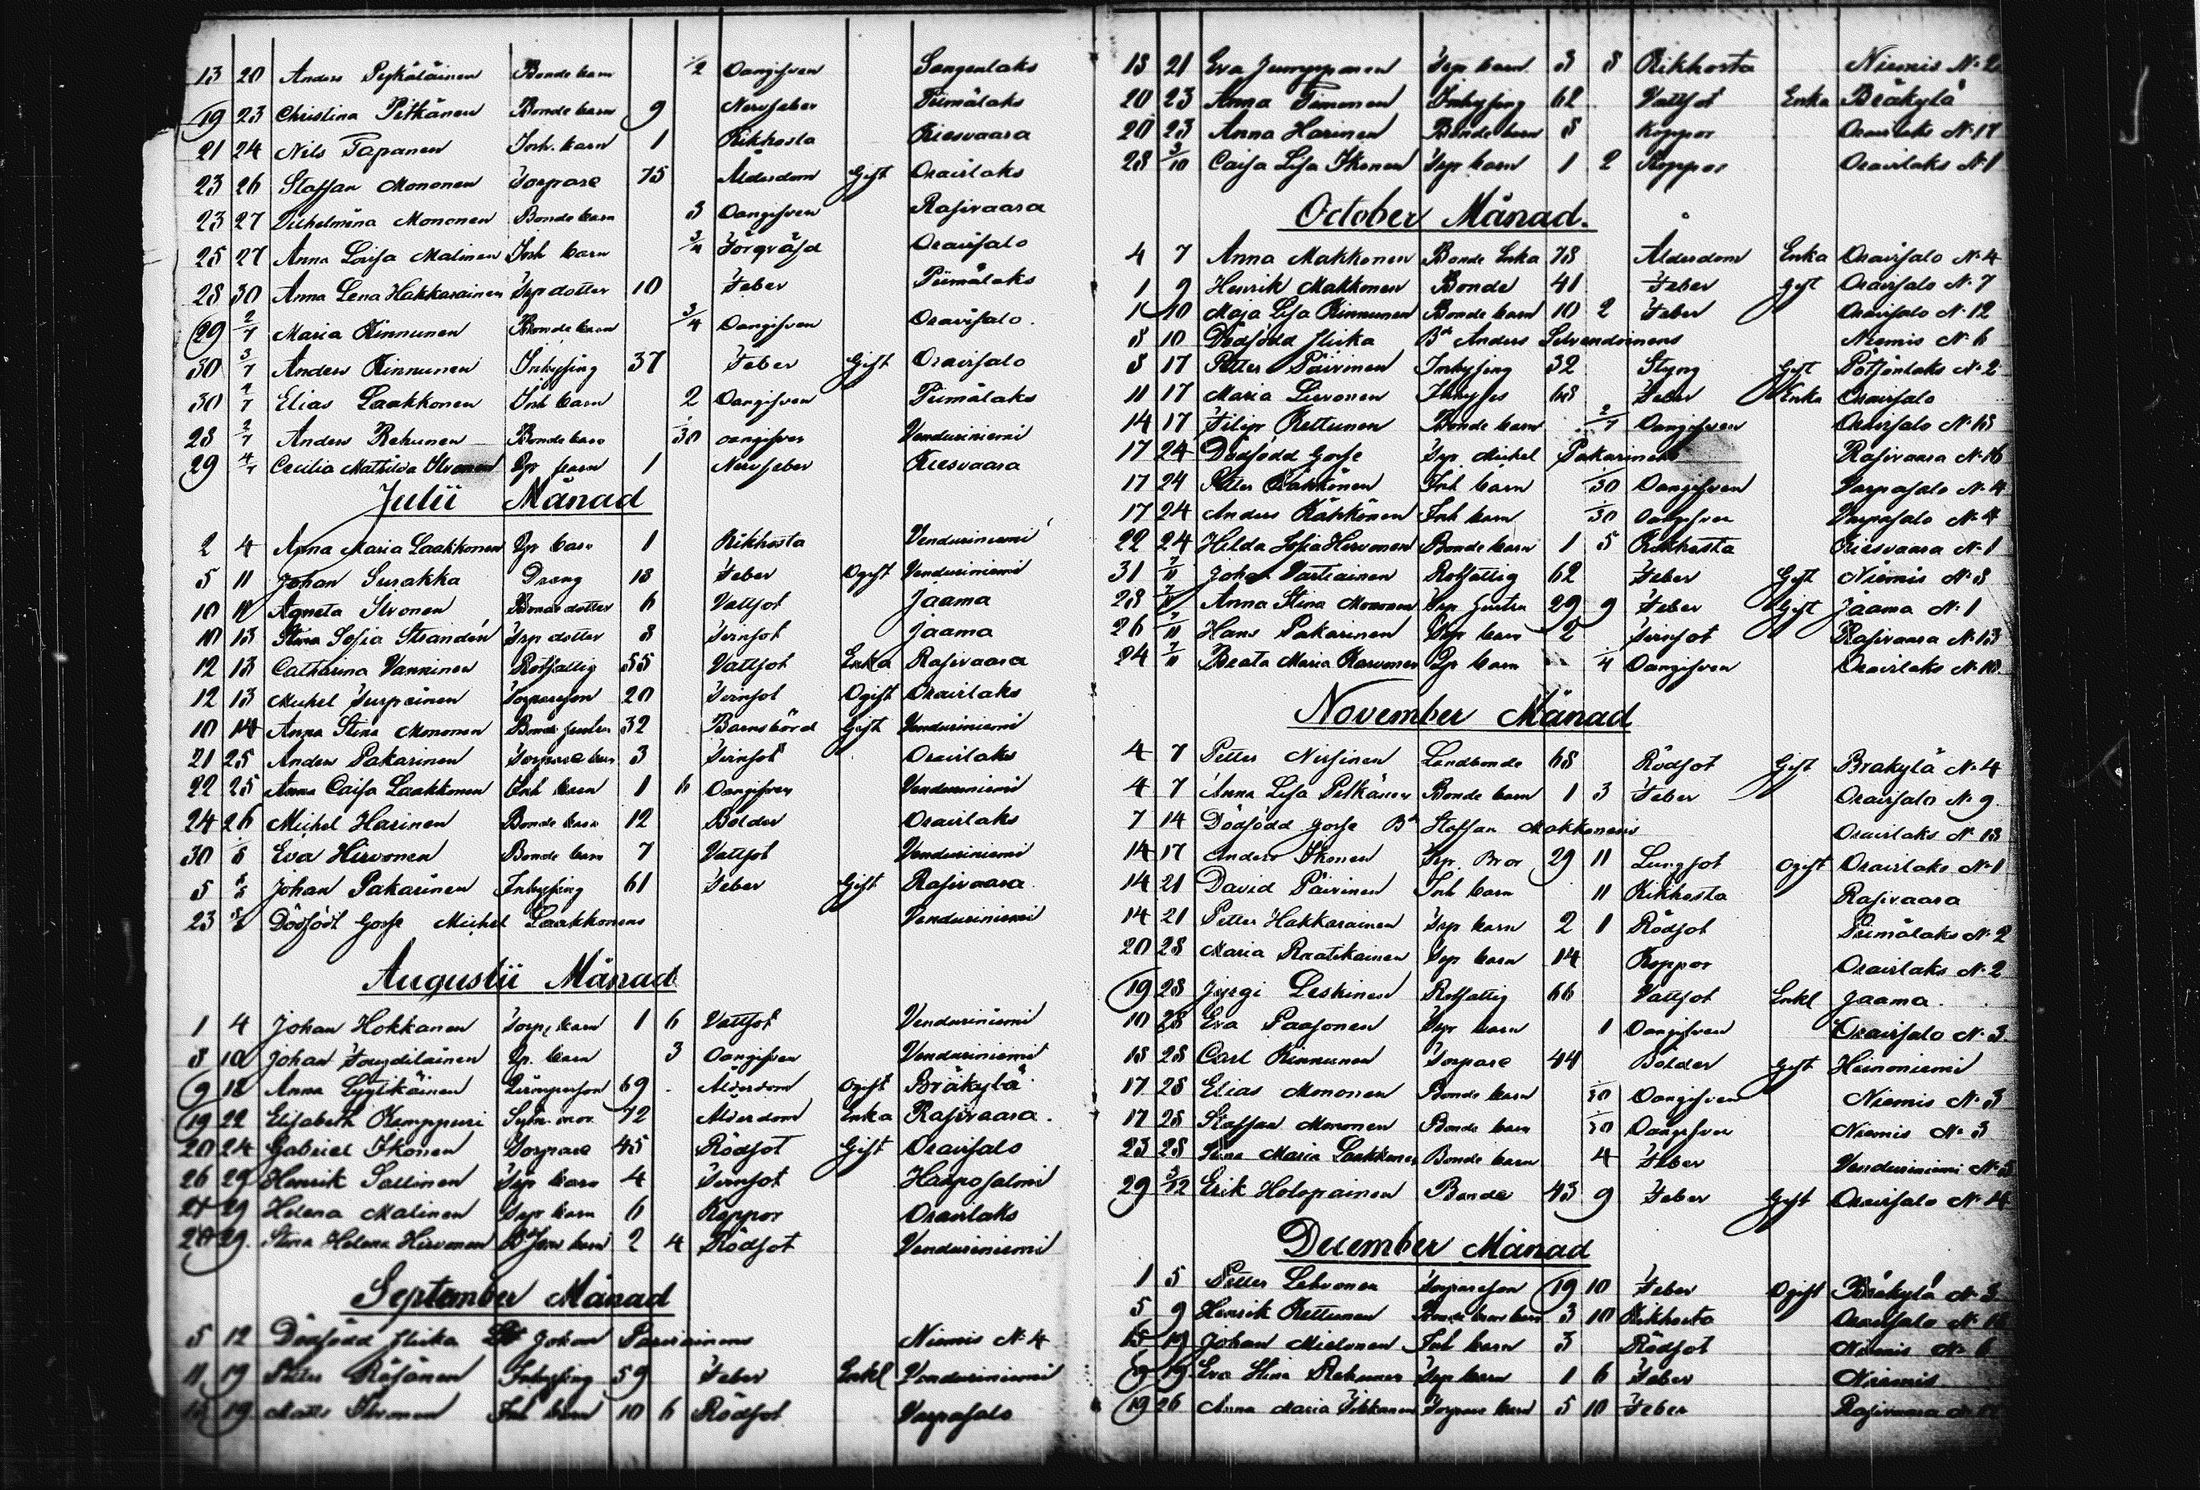 13 20 Anders Pyykäläinen Bonde barn 1/2 Oangifven Sonyenlaks
19 23 Christina Pitkänen Bonde barn 9 Nervfeber Piimälaks
21 24 Nils Tapanen Inh. barn 1 Kikhosta Kiesvaara
23 26 Staffan Mononen Torpare 75 Ålderdom Gift Oravilaks
23 27 Vilhelmina Mononen Bonde barn 3 Oangifven Rasivaara
25 27 Anna Lovisa Malinen Inh barn 3/4 Förqväfd Oravisalo
28 30 Anna Lena Hakkarainen Trp dotter 10 Feber Piimälaks
29 2/7 Maria Kinnunen Bonde barn 3/4 Oangifven Oravisalo.
30 3/7 Anders Kinnunen Inhysing 37 Feber Gift Oravisalo
30 4/7 Elias Laakkonen Inh barn 2 Oangifven Piimälaks
28 2/7 Anders Rehunen Bonde barn /30 oangifven Venduriniemi
29 4/7 Cecilia Mathilda Ikonen Trp barn 1 Nervfeber Kiesvaara
Julii Månad
2 4 Anna Maria Laakkonen Trp barn 1 Kikhosta Venduriniemi
5 11 Johan Surakka Dreng 18 Feber Ogift Venduriniemi
10 11 Agneta Ikonen Bonde dotter 6 Vattsot Jaama
10 13 Stina Sofia Strandén Trp dotter 8 Tvinsot Jaama
12 13 Catharina Vanninen Rotfattig 55 Vattsot Enka Rasivaara
12 13 Michel Turpeinen Torpareson 20 Tvinsot Ogift Oravilaks
10 14 Anna Stina Mononen Bonde hustru 32 Barnsbörd Gift Venduriniemi
21 25 Anders Pakarinen Torpare barn 3 Tvinsot Oravilaks
22 25 Anna Caisa Laakkonen Inh barn 1 6 Oangifven Venduriniemi
24 26 Michel Harinen Bonde barn 12 Bölder Oravilaks
30 /8 Eva Hirvonen Bonde barn 7 Vattsot Venduriniemi
5 /8 Johan Pakarinen Inhysing 61 Feber Gift Rasivaara
23 Dödfödt Gosse Michel Laakkonens Venduriniemi
Augustii Månad
1 4 Johan Hokkanen Torp. barn 1 6 Vattsot Venduriniemi
8 10 Johan Trp. barn 3 Oangifven Venduriniemi
9 12 Anna Lyytikäinen 69 Ålderdom Ogift Bräkylä
19 22 Elisabeth Kemppuri 72 Ålderdom Enka Rasivaara.
20 24 Gabriel Ikonen Torpare 45 Rödsot Gift Oravisalo
26 29 Henrik Sallinen Trp barn 4 Tvinsot Harposalmi
27 29 Helena Malinen Trp barn 6 Koppor Oravilaks
28 29. Stina Helena Hirvonen barn 2 4 Rödsot Venduriniemi
September Månad
5 12 Dödfödd flicka Johan Parviainens Niemis No 4
11 19 Petter Räisänen Inhysing 59 Feber Enkl Venduriniemi
19 Matts Ikonen Inh barn 10 6 Rödsot Varpasalo
18 21 Eva Jumpponen Trp barn. 3 8 Kikhosta Niemis No 2
20 23 Anna Timonen Inhysing 62 Vattsot Enka Bräkylä
20 23 Anna Harinen Bonde barn 8 Koppor Oravilaks No 17
28 3/10 Caisa Lisa Ikonen Trp barn 1 2 Koppor Oravilaks No 1
October Månad.
4 7 Anna Makkonen Bonde Enka 78 Ålderdom Enka Oravisalo No 4
1 9 Henrik Makkonen Bonde 41 Feber gift Oravisalo No 7
1 10 Maja Lisa Kinnunen Bonde barn 10 2 Feber Oravisalo No 12
8 10 Dödfödd flicka Bd Anders Silvendoinens Niemis No 6
8 17 Petter Päivinen Inhysing 32 Styng Gift Pötsönlaks No 2
11 17 Maria Leevonen Inhyses 68 Feber Enka Oravisalo
14 17 Filip Kettunen Bonde barn 2/7 Oangifven Oravisalo No 18
17 24 Dödfödd Gosse Trp Michel Pakarinens Rasivaara No 16
17 24 Petter Räkkönen Inh barn /30 Oangifven Varpasalo No 4
17 24 Anders Räkkönen Inh barn /30 Oangifven Varpasalo No 4
22 24 Hilda Sofia Hirvonen Bonde barn 1 5 Kikhosta Kiesvaara No 1
31 7/11 Johan Vartiainen Rotfattig 62 Feber Gift Niemis No 8
28 7/11 Anna Stina Mononen Trp hustru 29 9 Feber Gift Jaama No 1
26 7/11 Hans Pakarinen Trp barn 2 Tvinsot Rasivaara No 13
24 7/11 Beata Maria Karvonen Trp barn /4 Oangifven Oravilaks No 10.
November Månad
4 7 Petter Nissinen Landbonde 68 Rödsot Gift Bräkylä No 4
4 7 Anna Lisa Pitkänen Bonde barn 1 3 Feber Oravisalo No 9
7 14 Dödfödd gosse Bd Staffan Makkonens Oravilaks No 13
14 17 Anders Ikonen Trp. Bror 29 11 Lungsot Ogift Oravilaks No 1
14 21 David Päivinen Inh barn 11 Kikhosta Rasivaara
14 21 Petter Hakkarainen Trp barn 2 1 Rödsot Piimälaks No 2
20 28 Maria Raatikainen Trp barn 14 Koppor Oravilaks No 2
19 28 Jyrgi Leskinen Rotfattig 66 Vattsot Enkl Jaama.
10 28 Eva Paasonen Trp barn 1 Oangifven Oravisalo No 3.
18 28 Carl Kinnunen Torpare 44 Bölder Gift Heinoniemi
17 28 Elias Mononen Bonde barn /30 Oangifven Niemis No 3
17 28 Staffan Mononen Bonde barn /30 Oangifven Niemis No 3
23 28 Stina Maria Laakkonen Bonde barn 4 Feber Venduriniemi No 5
29 3/12 Erik Holopainen Bonde 43 9 Feber Gift Oravisalo No 14
December Månad
1 5 Petter Lehvonen Torpareson 19 10 Feber Ogift Bräkylä No 3
5 9 Henrik Kettunen Bonde barn 3 10 Kikhosta Oravisalo No 18
19 Johan Mielonen Inh barn 3 Rödsot Niemis No 6
19 Eva Stina Rehunen Trp barn 1 6 Feber Niemis
19 26 Anna Maria Torpare barn 5 10 Feber Rasivaara No